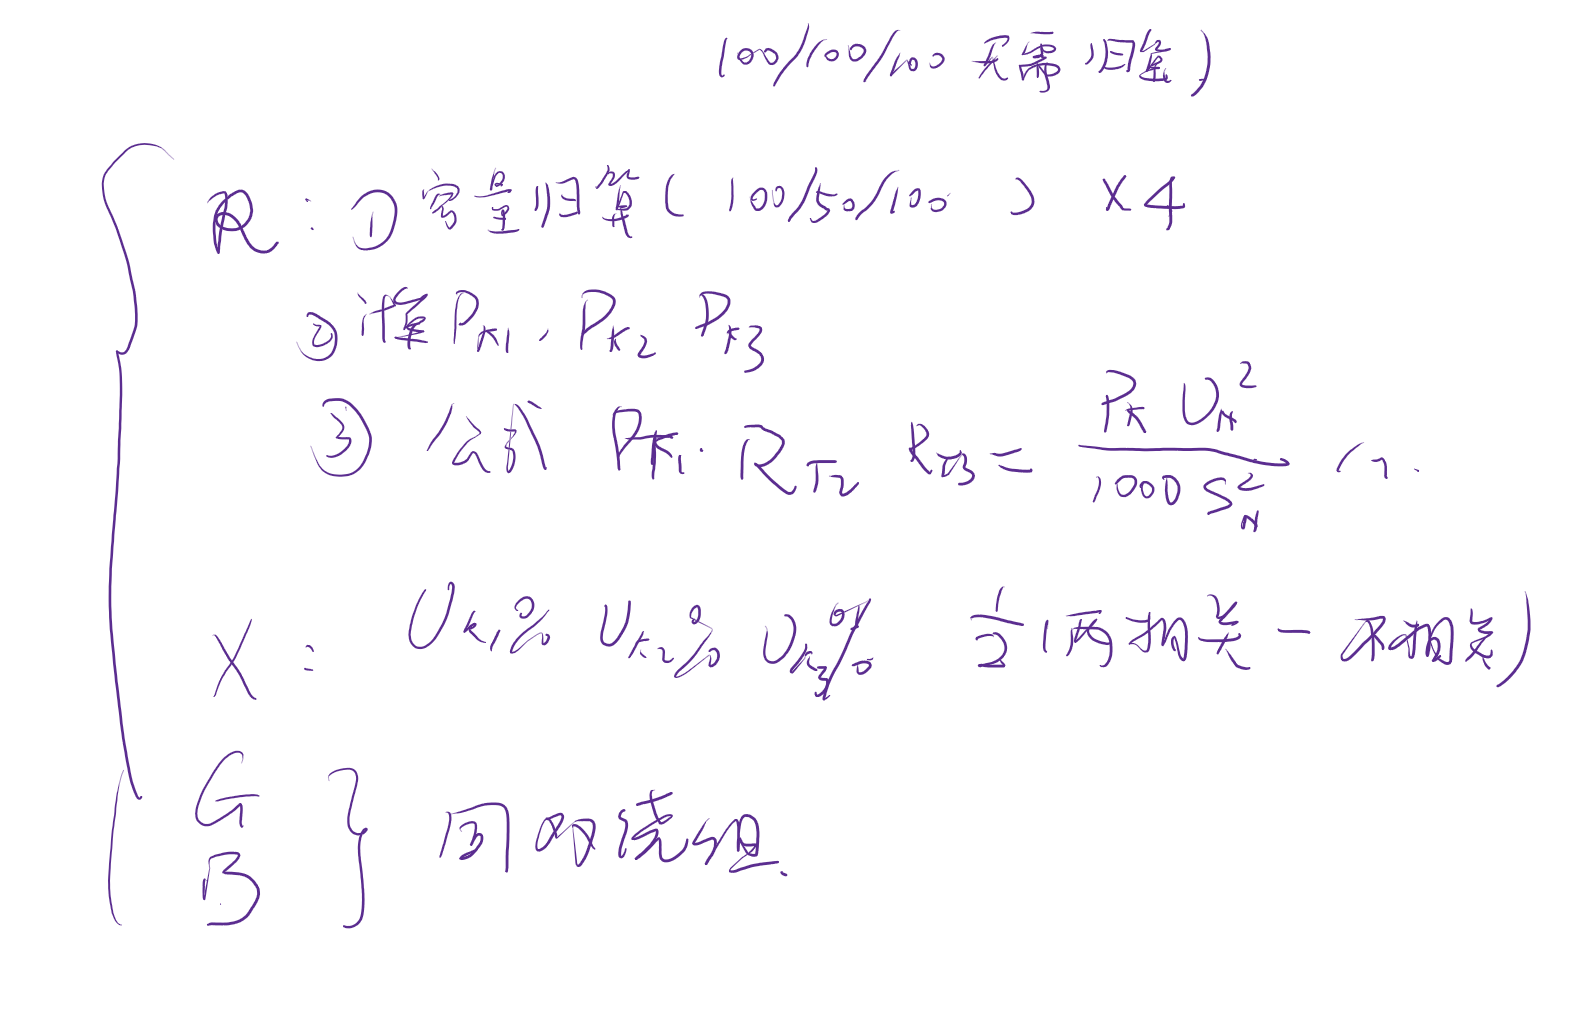 100/100/100 无需归算)
R: ① 容量归算( 100/50/100 ) ×4
② 计算 PK1, PK2 PK3
③ 公式 PK1. RT2 RT3 = PK UN² / 1000 SN²
X: UK1% UK2% UK3% 1/2 (两相关 - 不相关)
G
B } 同双绕组.